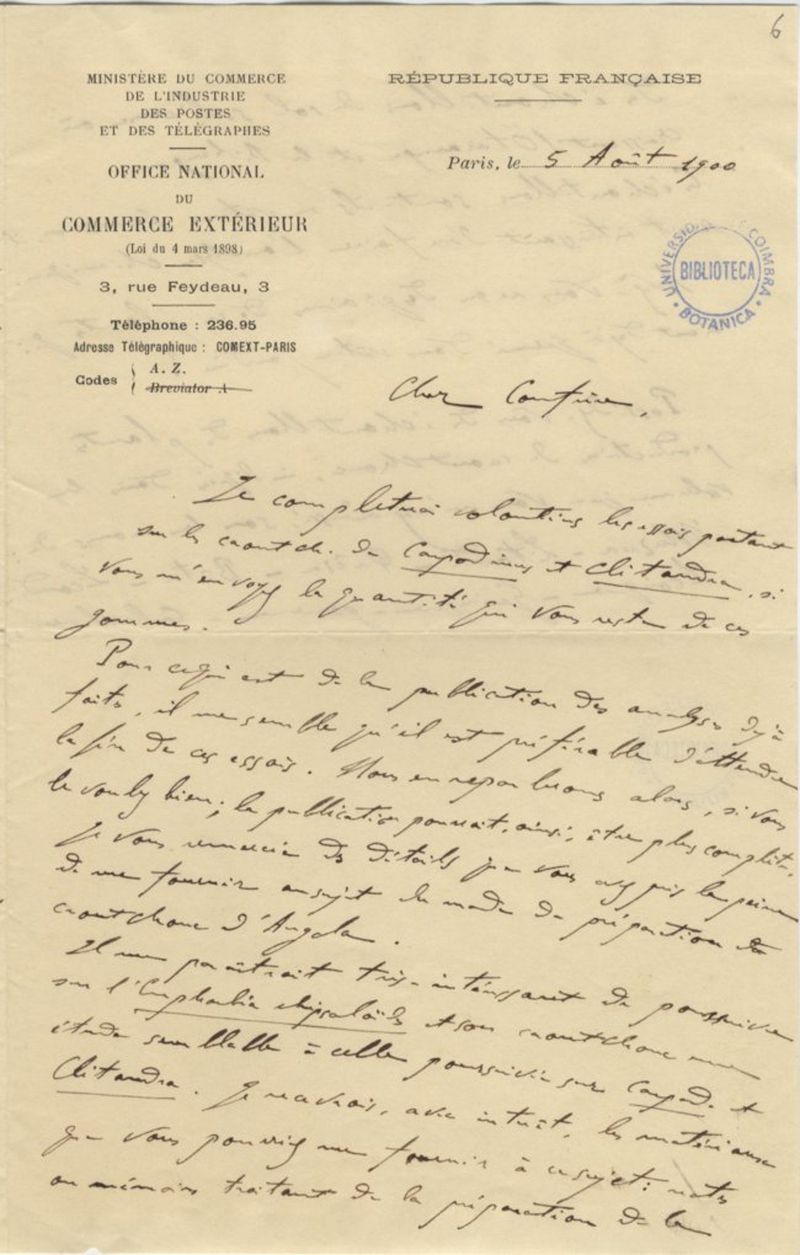 6
MINISTÈRE DU COMMERCE
DE L'INDUSTRIE
DES POSTES
ET DES TÉLÉGRAPHES
OFFICE NATIONAL
DU
COMMERCE EXTÉRIEUR
(Loi du 4 mars 1898)
3, rue Feydeau, 3
Téléphone : 236.95
Adresse Télégraphique : COMEXT-PARIS
Codes { A. Z.
Breviator A
RÉPUBLIQUE FRANÇAISE
Paris, le 5 Août 1900
UNIVERSIDADE DE COIMBRA
BIBLIOTECA
BOTANICA
Cher Confrère,
Je complèterai volontiers les essais portant
sur les caoutch. de Carpodinus et Clitandra, si
vous m'envoyez la quantité qui vous reste de ces
gommes.
Pour ce qui est de la publication des analyses déjà
faites, il me semble qu'il est préférable d'attendre
la fin de ces essais. Nous en reparlerons alors, si vous
le voulez bien ; la publication pourrait, ainsi, être plus complète.
Je vous remercie des détails que vous avez pris la peine
de me fournir au sujet du mode de préparation du
caoutchouc d'Angola.
Il me paraîtrait très-intéressant de poursuivre
sur l'Euphorbia rhipsaloïdes et son caoutchouc une
étude semblable à celle poursuivie sur Carpod. et
Clitandra. Je recevrais, avec intérêt, les matériaux
que vous pourriez me fournir à ce sujet : notes
ou mémoires traitant de la préparation de la